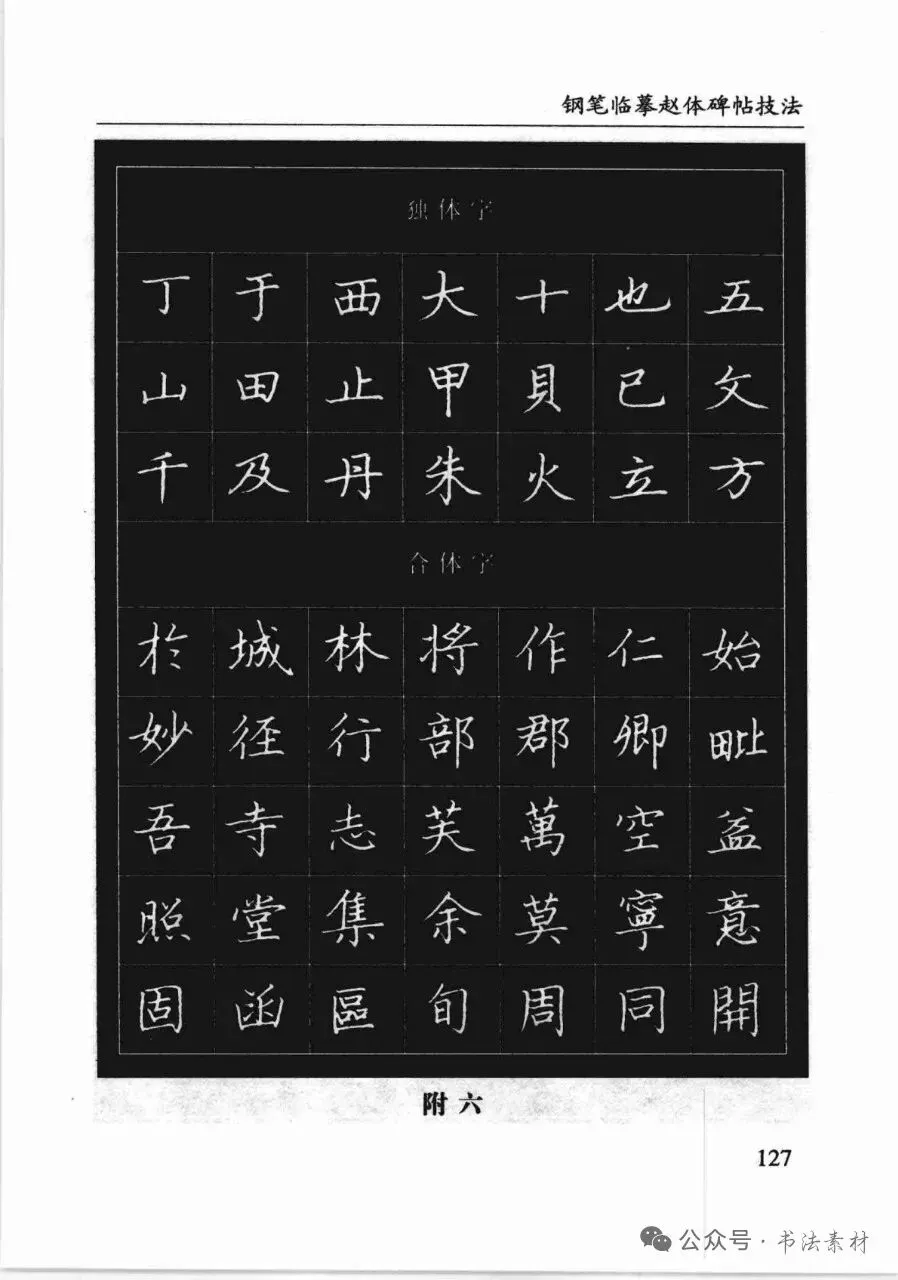 钢笔临摹赵体碑帖技法
独体字
丁于西大十也五
山田止甲貝已文
千及丹朱火立方
合体字
於城林将作仁始
妙径行部郡卿毗
吾寺志芙萬空益
照堂集余莫寧意
固函區旬周同開
附六
127
公众号·书法素材